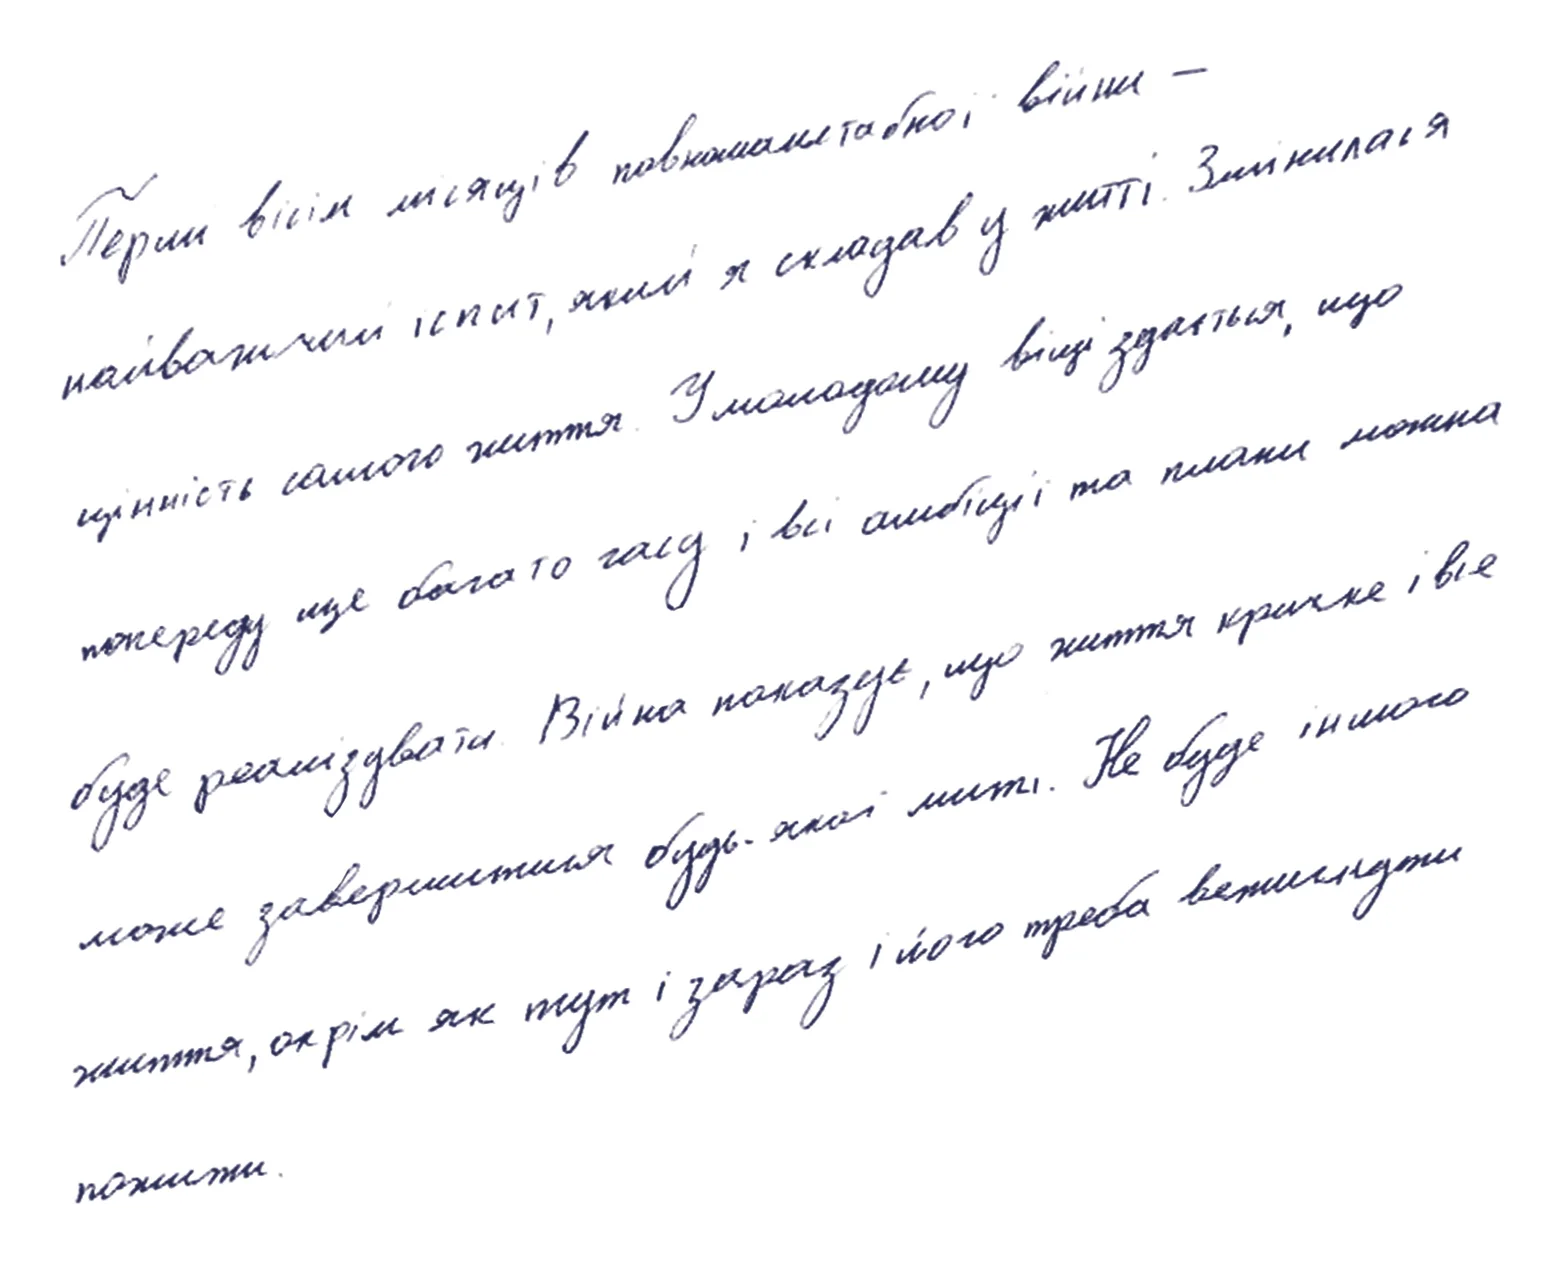 Перші вісім місяців повномасштабної війни –
найважчий іспит, який я складав у житті. Змінилася
цінність самого життя. У молодому віці здається, що
попереду ще багато часу і всі амбіції та плани можна
буде реалізувати. Війна показує, що життя крихке і все
може завершитися будь-якої миті. Не буде іншого
життя, окрім як тут і зараз і його треба
пожити.